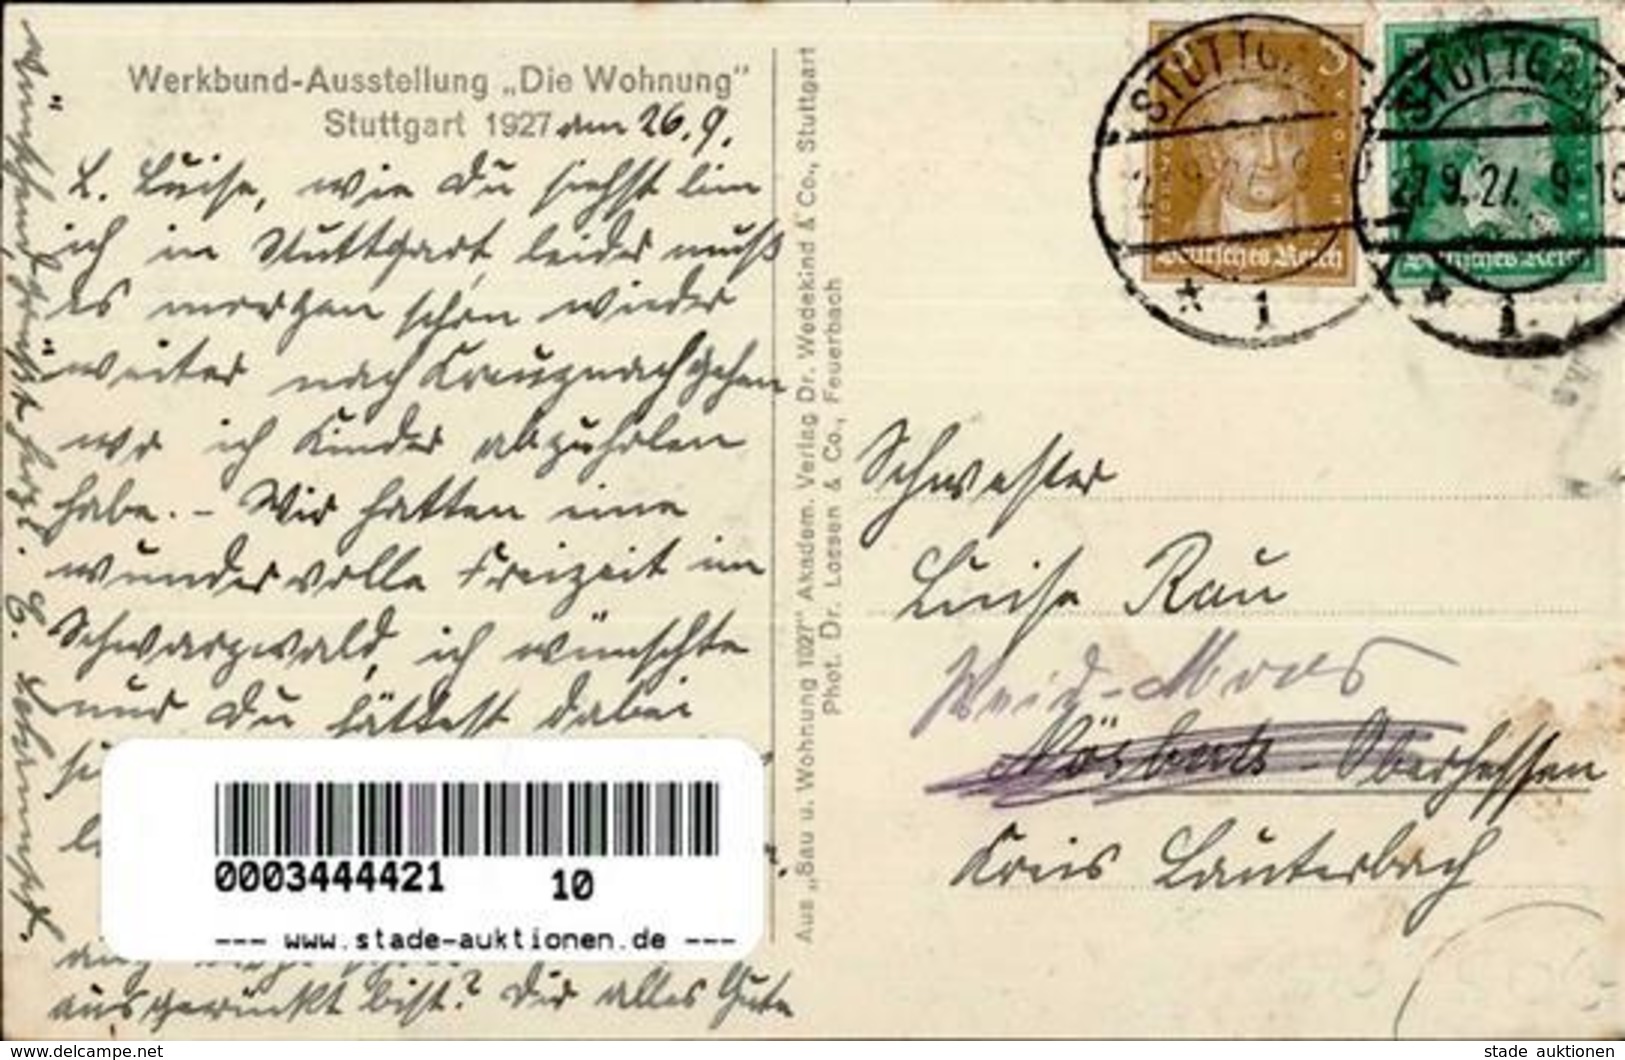 Werkbund-Ausstellung „Die Wohnung"
Stuttgart 1927 den 26.9.
L. Luise, wie Du siehst bin
ich in Stuttgart, leider muß
es morgen schon wieder
weiter nach Kreuznach gehen
wo ich Kinder abzuholen
habe. - Wir hatten eine
wundervolle Freizeit im
Schwarzwald, ich wünschte
nur Du hättest dabei
ausgerückt bist? Dir alles Gute
wünschend grüßt herzl.
Aus „Bau u. Wohnung 1927" Akadem. Verlag Dr. Wedekind & Co., Stuttgart
Phot. Dr. Lossen & Co., Feuerbach
STUTTGART
9.27. 9
1
Deutsches Reich
3
STUTTGART
27.9.27. 9-10
1
Deutsches Reich
5
Schwester
Luise Rau
Oberhessen
Kreis Lauterbach
0003444421 10
--- www.stade-auktionen.de ---
www.delcampe.net
stade auktionen